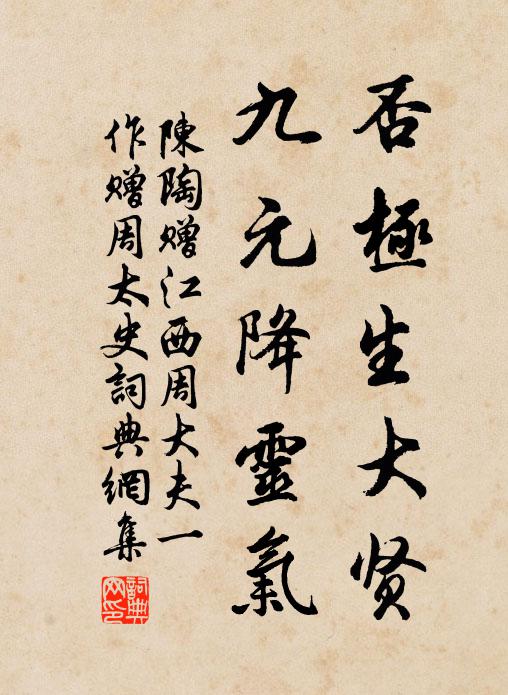 否極生大贤
九元降靈氣
陳陶赠江西周大夫一
作赠周太史詞典網集
詞典网印